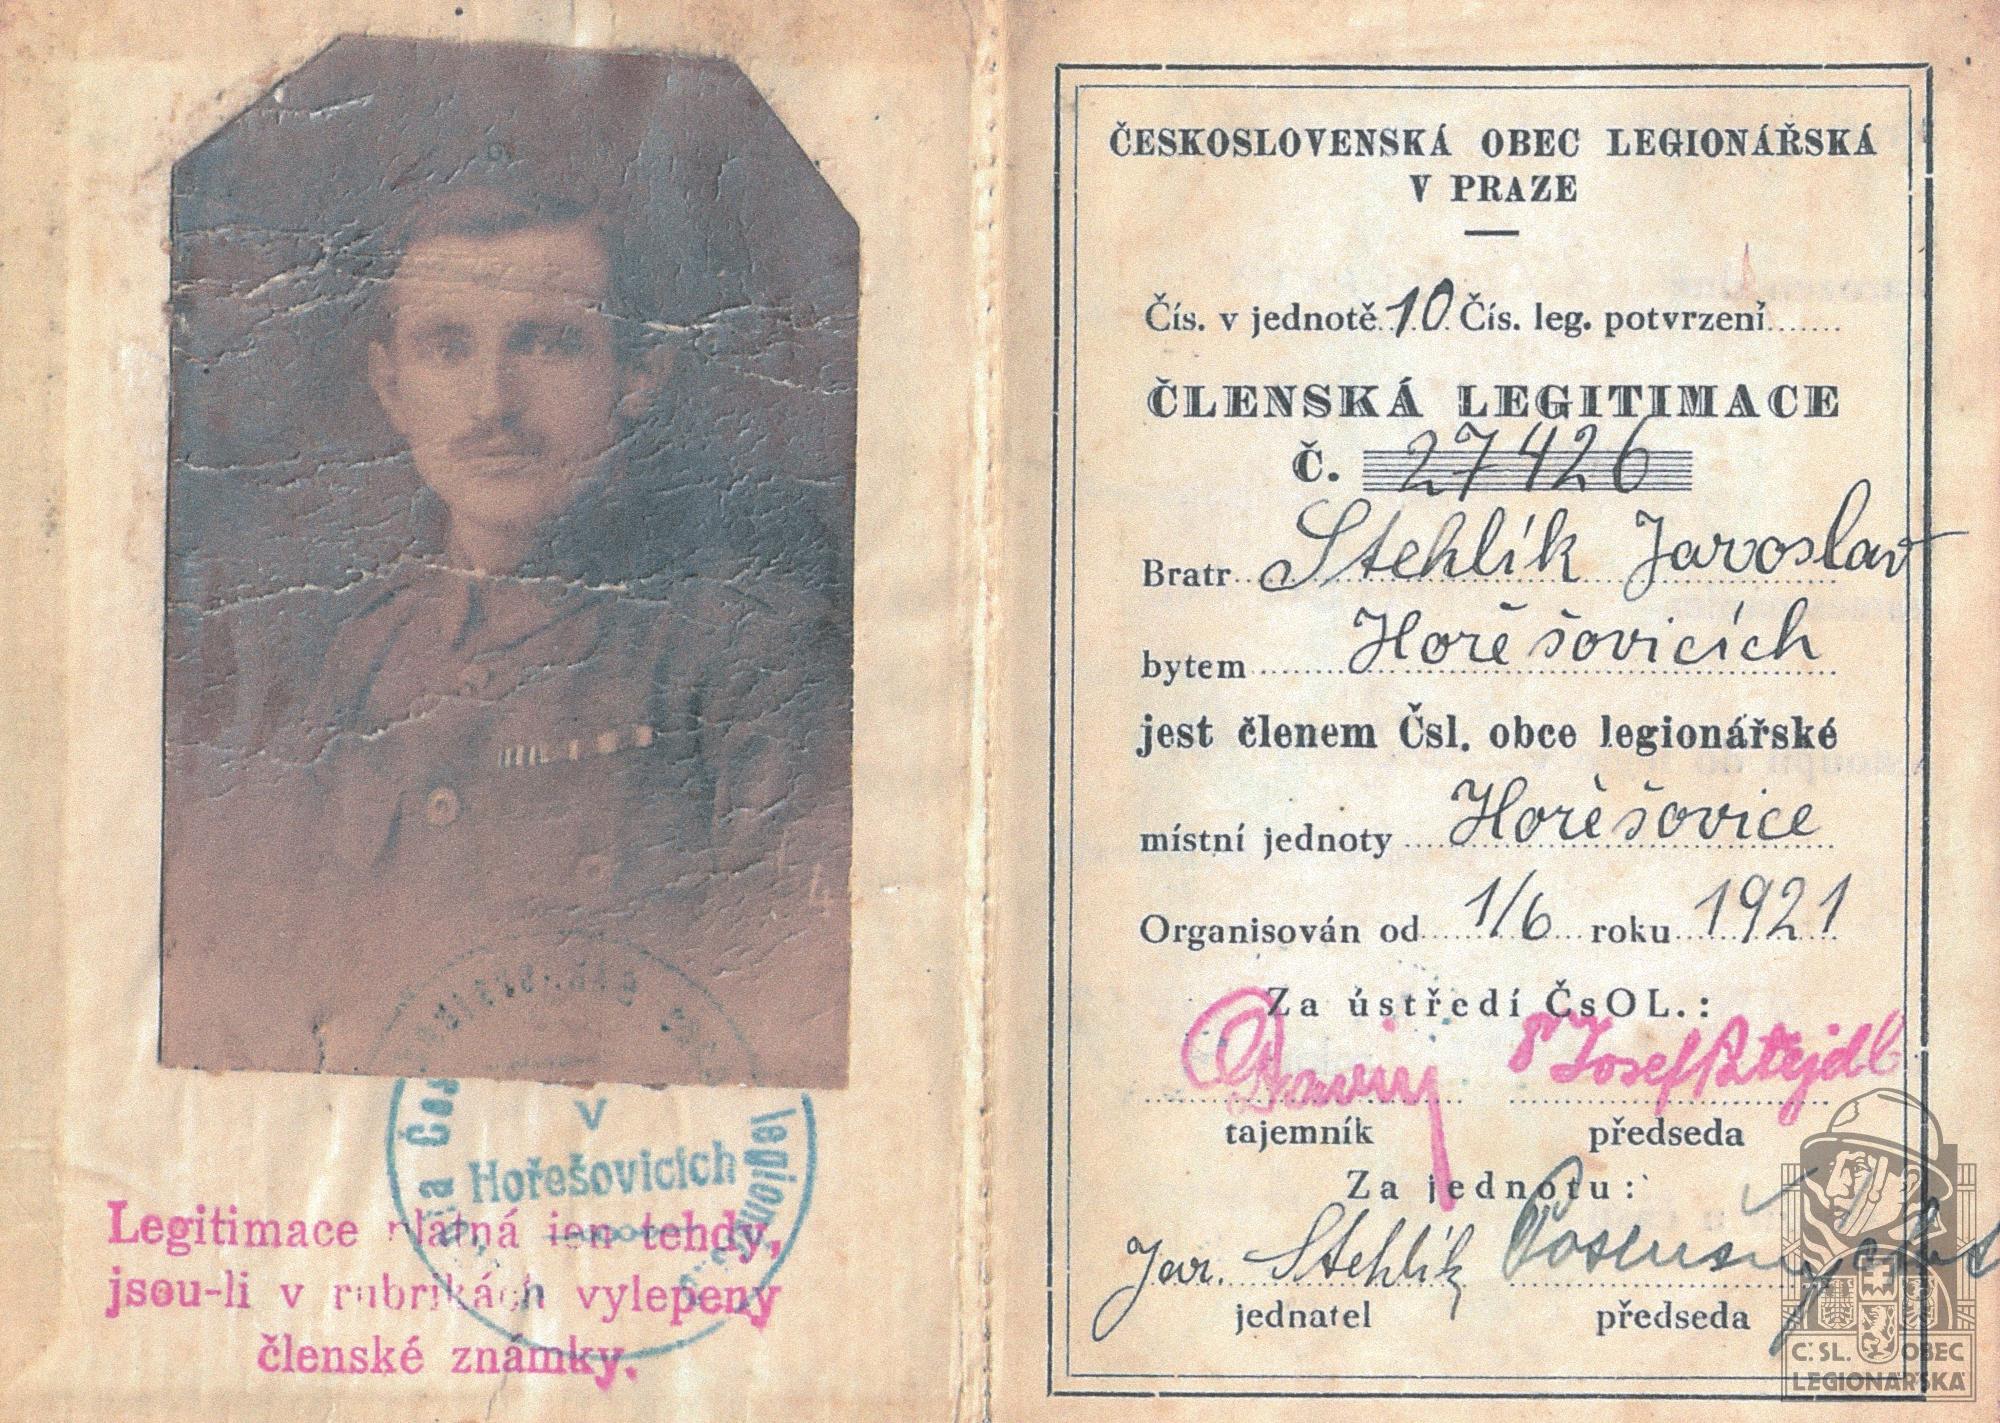 Legitimace platná jen tehdy,
jsou-li v rubrikách vylepeny
členské známky.
v
Hořešovicích
ČESKOSLOVENSKÁ OBEC LEGIONÁŘSKÁ
V PRAZE
Čís. v jednotě 10 Čís. leg. potvrzení
ČLENSKÁ LEGITIMACE
Č. 27426
Bratr Stehlík Jaroslav
bytem Hořešovicích
jest členem Čsl. obce legionářské
místní jednoty Hořešovice
Organisován od 1/6 roku 1921
Za ústředí ČsOL.:
Josef Patejdl
tajemník předseda
Za jednotu:
Jar. Stehlík
jednatel předseda
Č. SL. OBEC
LEGIONÁŘSKÁ